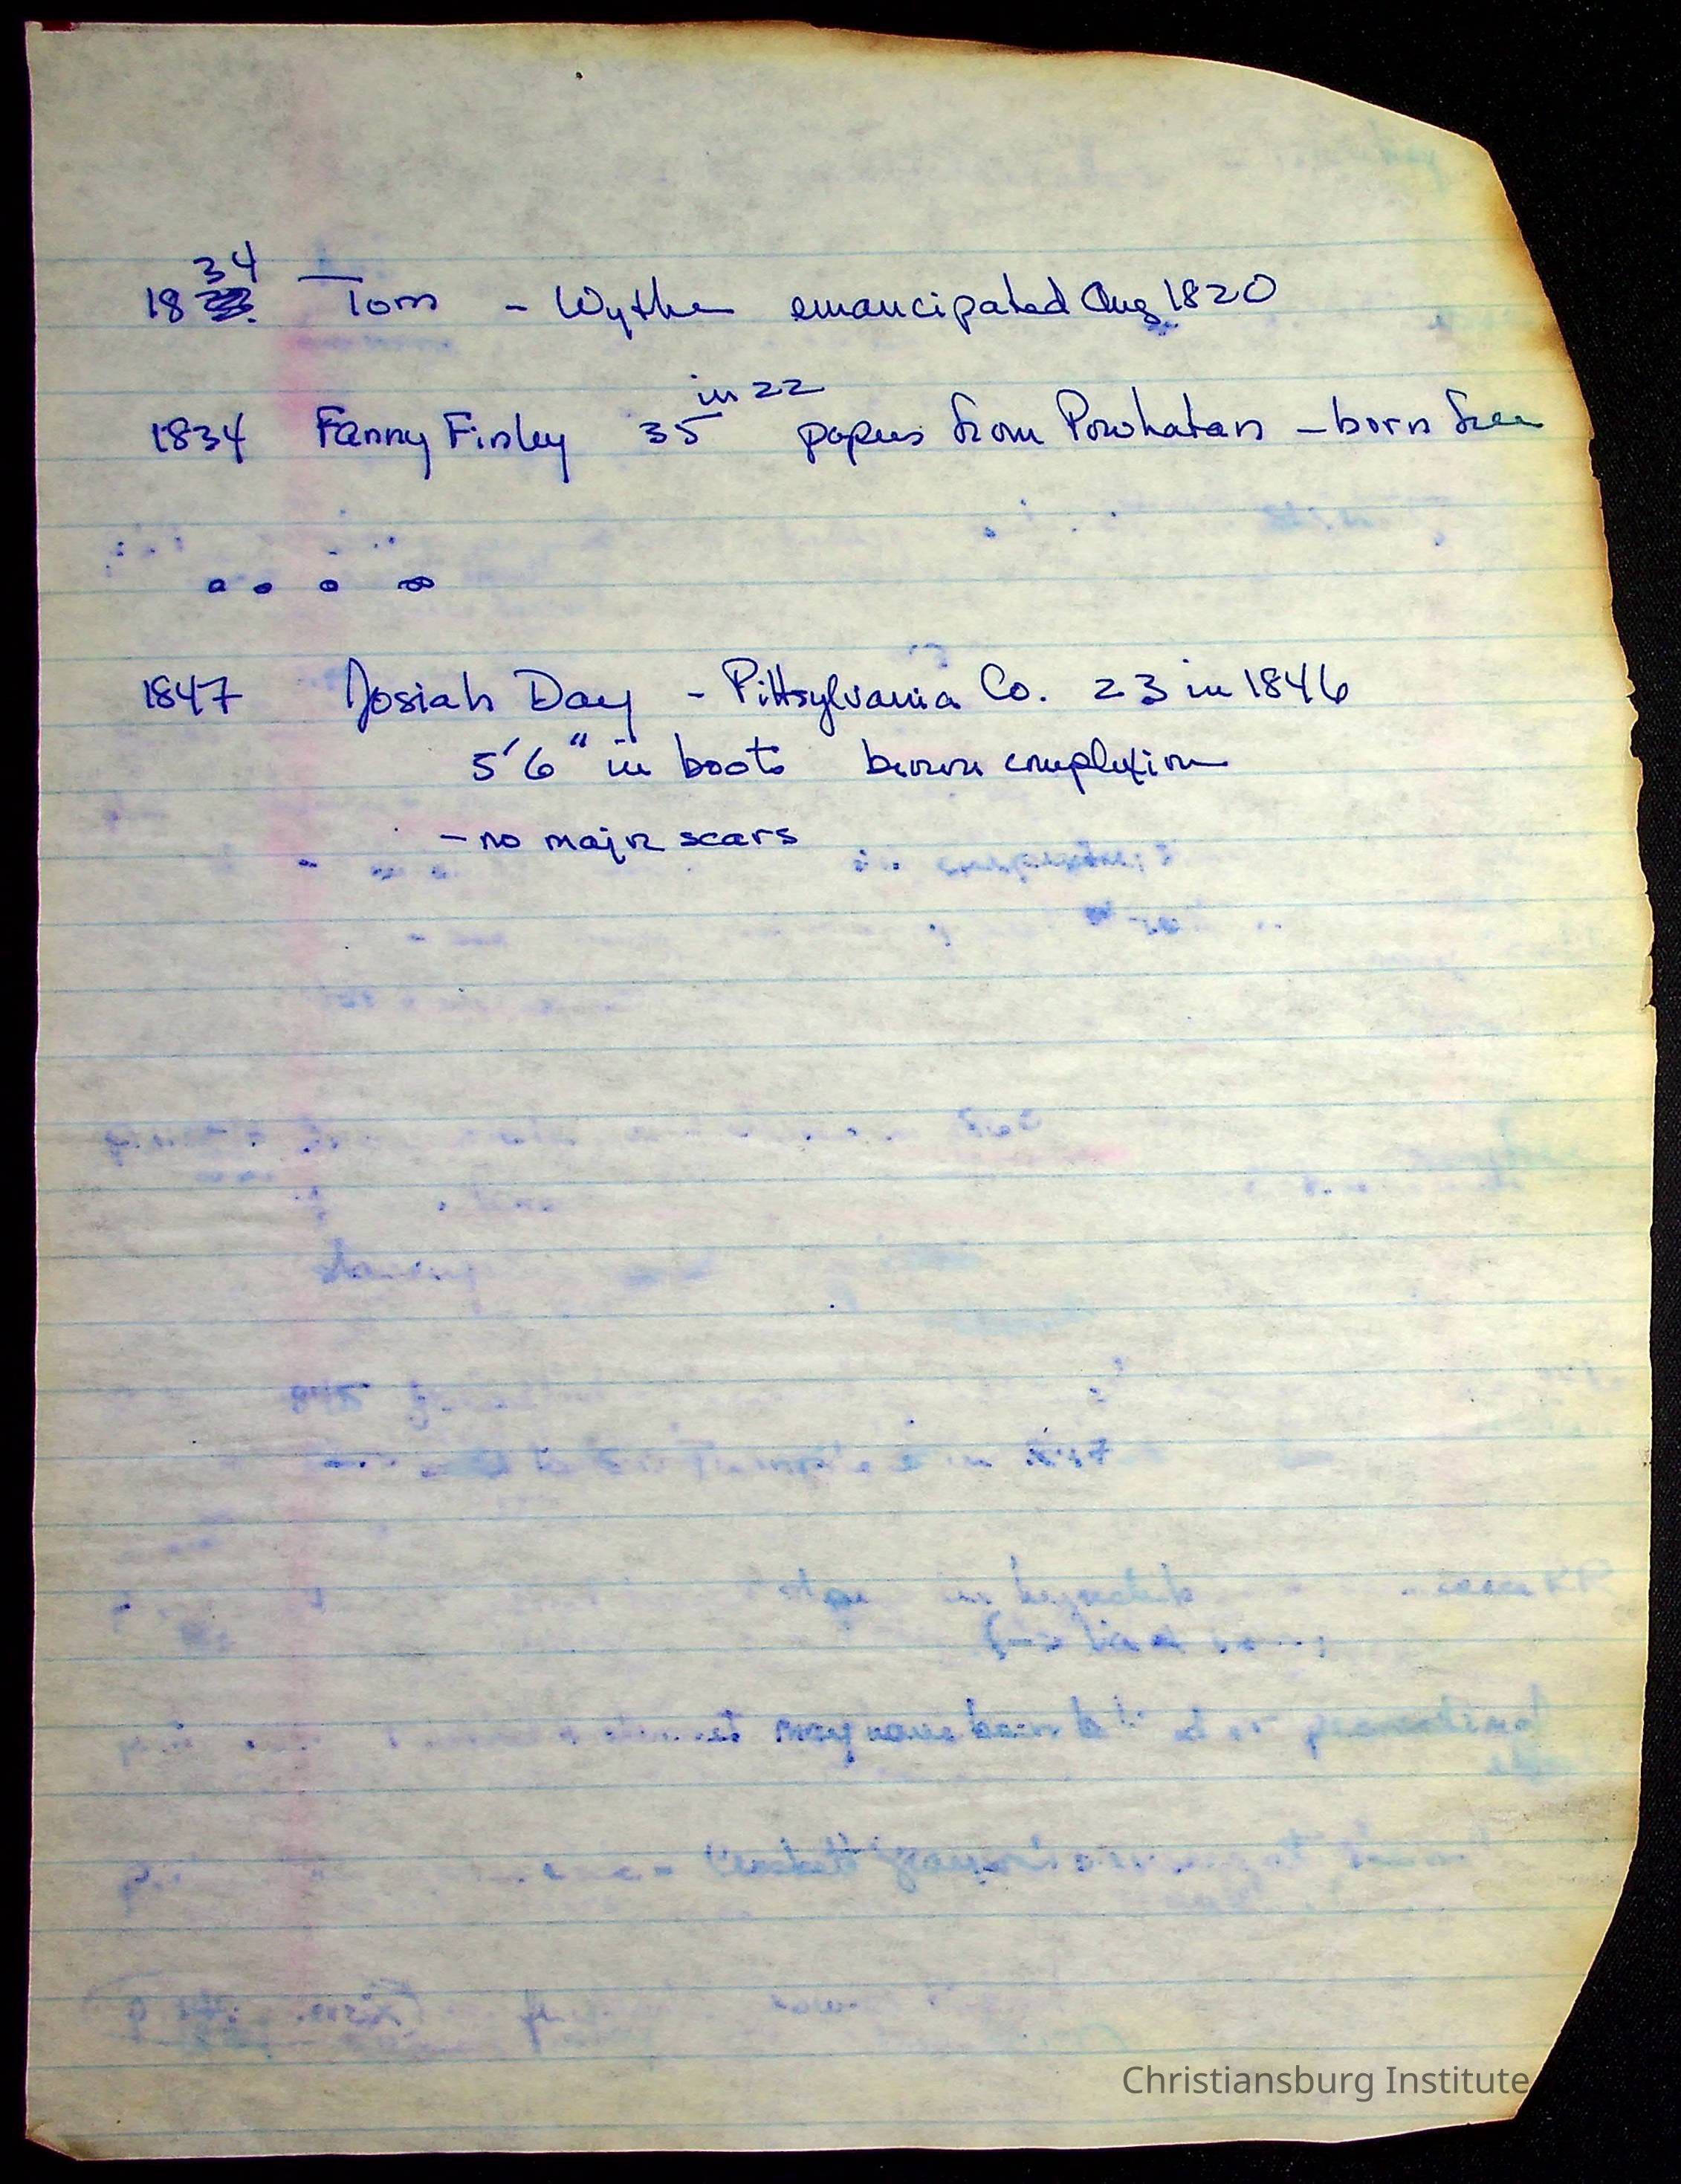 1834 Tom - Wythe emancipated Aug 1820
in 22
1834 Fanny Finley 35 papers from Powhatan - born free
1847 Josiah Day - Pittsylvania Co. 23 in 1846
5'6" in boots brown complexion
- no major scars
Christiansburg Institute